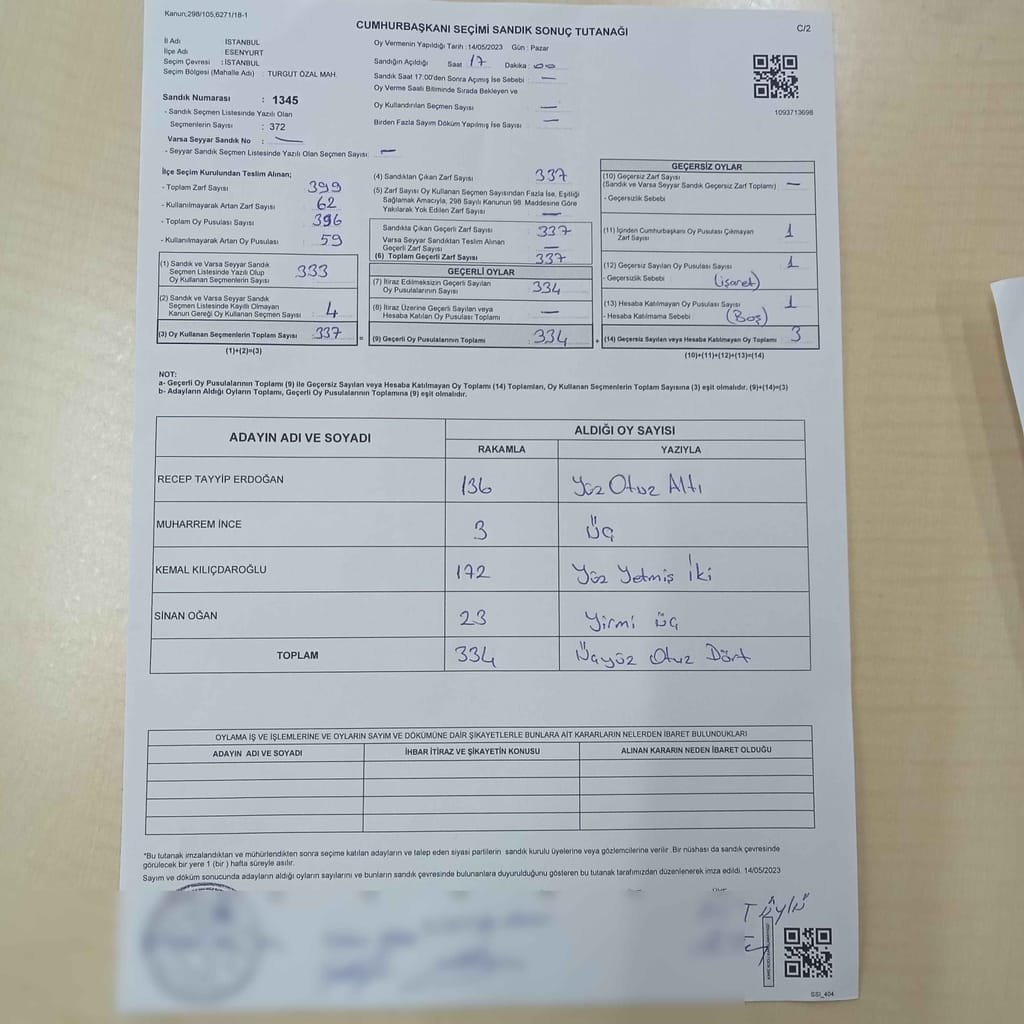 Kanun;298/105,6271/18-1
CUMHURBAŞKANI SEÇİMİ SANDIK SONUÇ TUTANAĞI
C/2
İl Adı : İSTANBUL
İlçe Adı : ESENYURT
Seçim Çevresi : İSTANBUL
Seçim Bölgesi (Mahalle Adı) : TURGUT ÖZAL MAH.
Sandık Numarası : 1345
- Sandık Seçmen Listesinde Yazılı Olan
Seçmenlerin Sayısı : 372
Varsa Seyyar Sandık No : —
- Seyyar Sandık Seçmen Listesinde Yazılı Olan Seçmen Sayısı: —
Oy Vermenin Yapıldığı Tarih : 14/05/2023 Gün : Pazar
Sandığın Açıldığı Saat : 17 Dakika : 00
Sandık Saat 17:00'den Sonra Açımış İse Sebebi : —
Oy Verme Saati Bitiminde Sırada Bekleyen ve
Oy Kullandırılan Seçmen Sayısı —
Birden Fazla Sayım Döküm Yapılmış İse Sayısı : —
1093713698
İlçe Seçim Kurulundan Teslim Alınan;
- Toplam Zarf Sayısı 399
- Kullanılmayarak Artan Zarf Sayısı 62
- Toplam Oy Pusulası Sayısı 396
- Kullanılmayarak Artan Oy Pusulası 59
(1) Sandık ve Varsa Seyyar Sandık
Seçmen Listesinde Yazılı Olup
Oy Kullanan Seçmenlerin Sayısı 333
(2) Sandık ve Varsa Seyyar Sandık
Seçmen Listesinde Kayıtlı Olmayan
Kanun Gereği Oy Kullanan Seçmen Sayısı 4
(3) Oy Kullanan Seçmenlerin Toplam Sayısı 337
(1)+(2)=(3)
=
(4) Sandıktan Çıkan Zarf Sayısı 337
(5) Zarf Sayısı Oy Kullanan Seçmen Sayısından Fazla İse, Eşitliği
Sağlamak Amacıyla, 298 Sayılı Kanunun 98. Maddesine Göre
Yakılarak Yok Edilen Zarf Sayısı —
Sandıkta Çıkan Geçerli Zarf Sayısı 337
Varsa Seyyar Sandıktan Teslim Alınan
Geçerli Zarf Sayısı —
(6) Toplam Geçerli Zarf Sayısı 337
GEÇERLİ OYLAR
(7) İtiraz Edilmeksizin Geçerli Sayılan
Oy Pusulalarının Sayısı 334
(8) İtiraz Üzerine Geçerli Sayılan veya
Hesaba Katılan Oy Pusulası Toplamı —
(9) Geçerli Oy Pusulalarının Toplamı 334
+
GEÇERSİZ OYLAR
(10) Geçersiz Zarf Sayısı
(Sandık ve Varsa Seyyar Sandık Geçersiz Zarf Toplamı) —
- Geçersizlik Sebebi
(11) İçinden Cumhurbaşkanı Oy Pusulası Çıkmayan
Zarf Sayısı 1
(12) Geçersiz Sayılan Oy Pusulası Sayısı 1
- Geçersizlik Sebebi (işaret)
(13) Hesaba Katılmayan Oy Pusulası Sayısı 1
- Hesaba Katılmama Sebebi (Boş)
(14) Geçersiz Sayılan veya Hesaba Katılmayan Oy Toplamı 3
(10)+(11)+(12)+(13)=(14)
NOT:
a- Geçerli Oy Pusulalarının Toplamı (9) ile Geçersiz Sayılan veya Hesaba Katılmayan Oy Toplamı (14) Toplamları, Oy Kullanan Seçmenlerin Toplam Sayısına (3) eşit olmalıdır. (9)+(14)=(3)
b- Adayların Aldığı Oyların Toplamı, Geçerli Oy Pusulalarının Toplamına (9) eşit olmalıdır.
ADAYIN ADI VE SOYADI
ALDIĞI OY SAYISI
RAKAMLA YAZIYLA
RECEP TAYYİP ERDOĞAN 136 Yüz Otuz Altı
MUHARREM İNCE 3 Üç
KEMAL KILIÇDAROĞLU 172 Yüz Yetmiş İki
SİNAN OĞAN 23 Yirmi üç
TOPLAM 334 Üçyüz Otuz Dört
OYLAMA İŞ VE İŞLEMLERİNE VE OYLARIN SAYIM VE DÖKÜMÜNE DAİR ŞİKAYETLERLE BUNLARA AİT KARARLARIN NELERDEN İBARET BULUNDUKLARI
ADAYIN ADI VE SOYADI İHBAR İTİRAZ VE ŞİKAYETİN KONUSU ALINAN KARARIN NEDEN İBARET OLDUĞU
*Bu tutanak imzalandıktan ve mühürlendikten sonra seçime katılan adayların ve talep eden siyasi partilerin sandık kurulu üyelerine veya gözlemcilerine verilir .Bir nüshası da sandık çevresinde
görülecek bir yere 1 (bir ) hafta süreyle asılır.
Sayım ve döküm sonucunda adayların aldığı oyların sayılarını ve bunların sandık çevresinde bulunanlara duyurulduğunu gösteren bu tutanak tarafımızdan düzenlenerek imza edildi. 14/05/2023
SSI_404